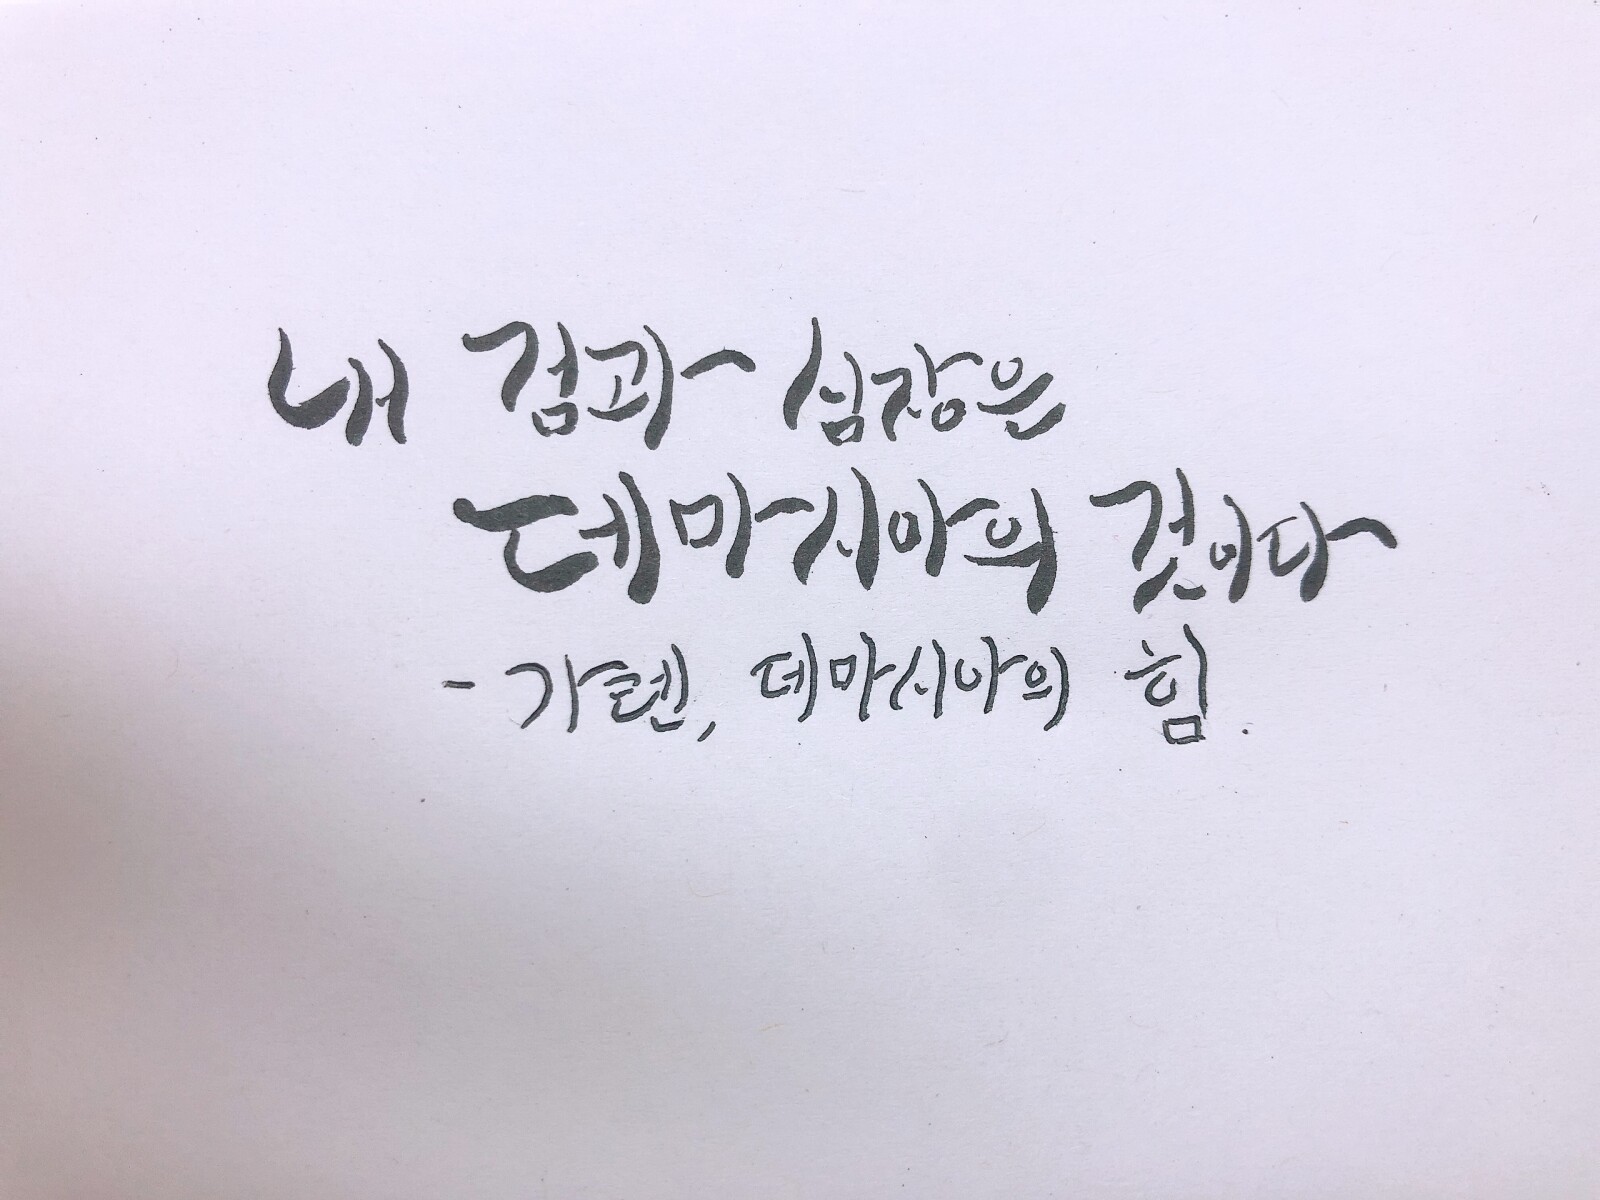 내 검과 심장은
데마시아의 것이다
- 가렌, 데마시아의 힘.